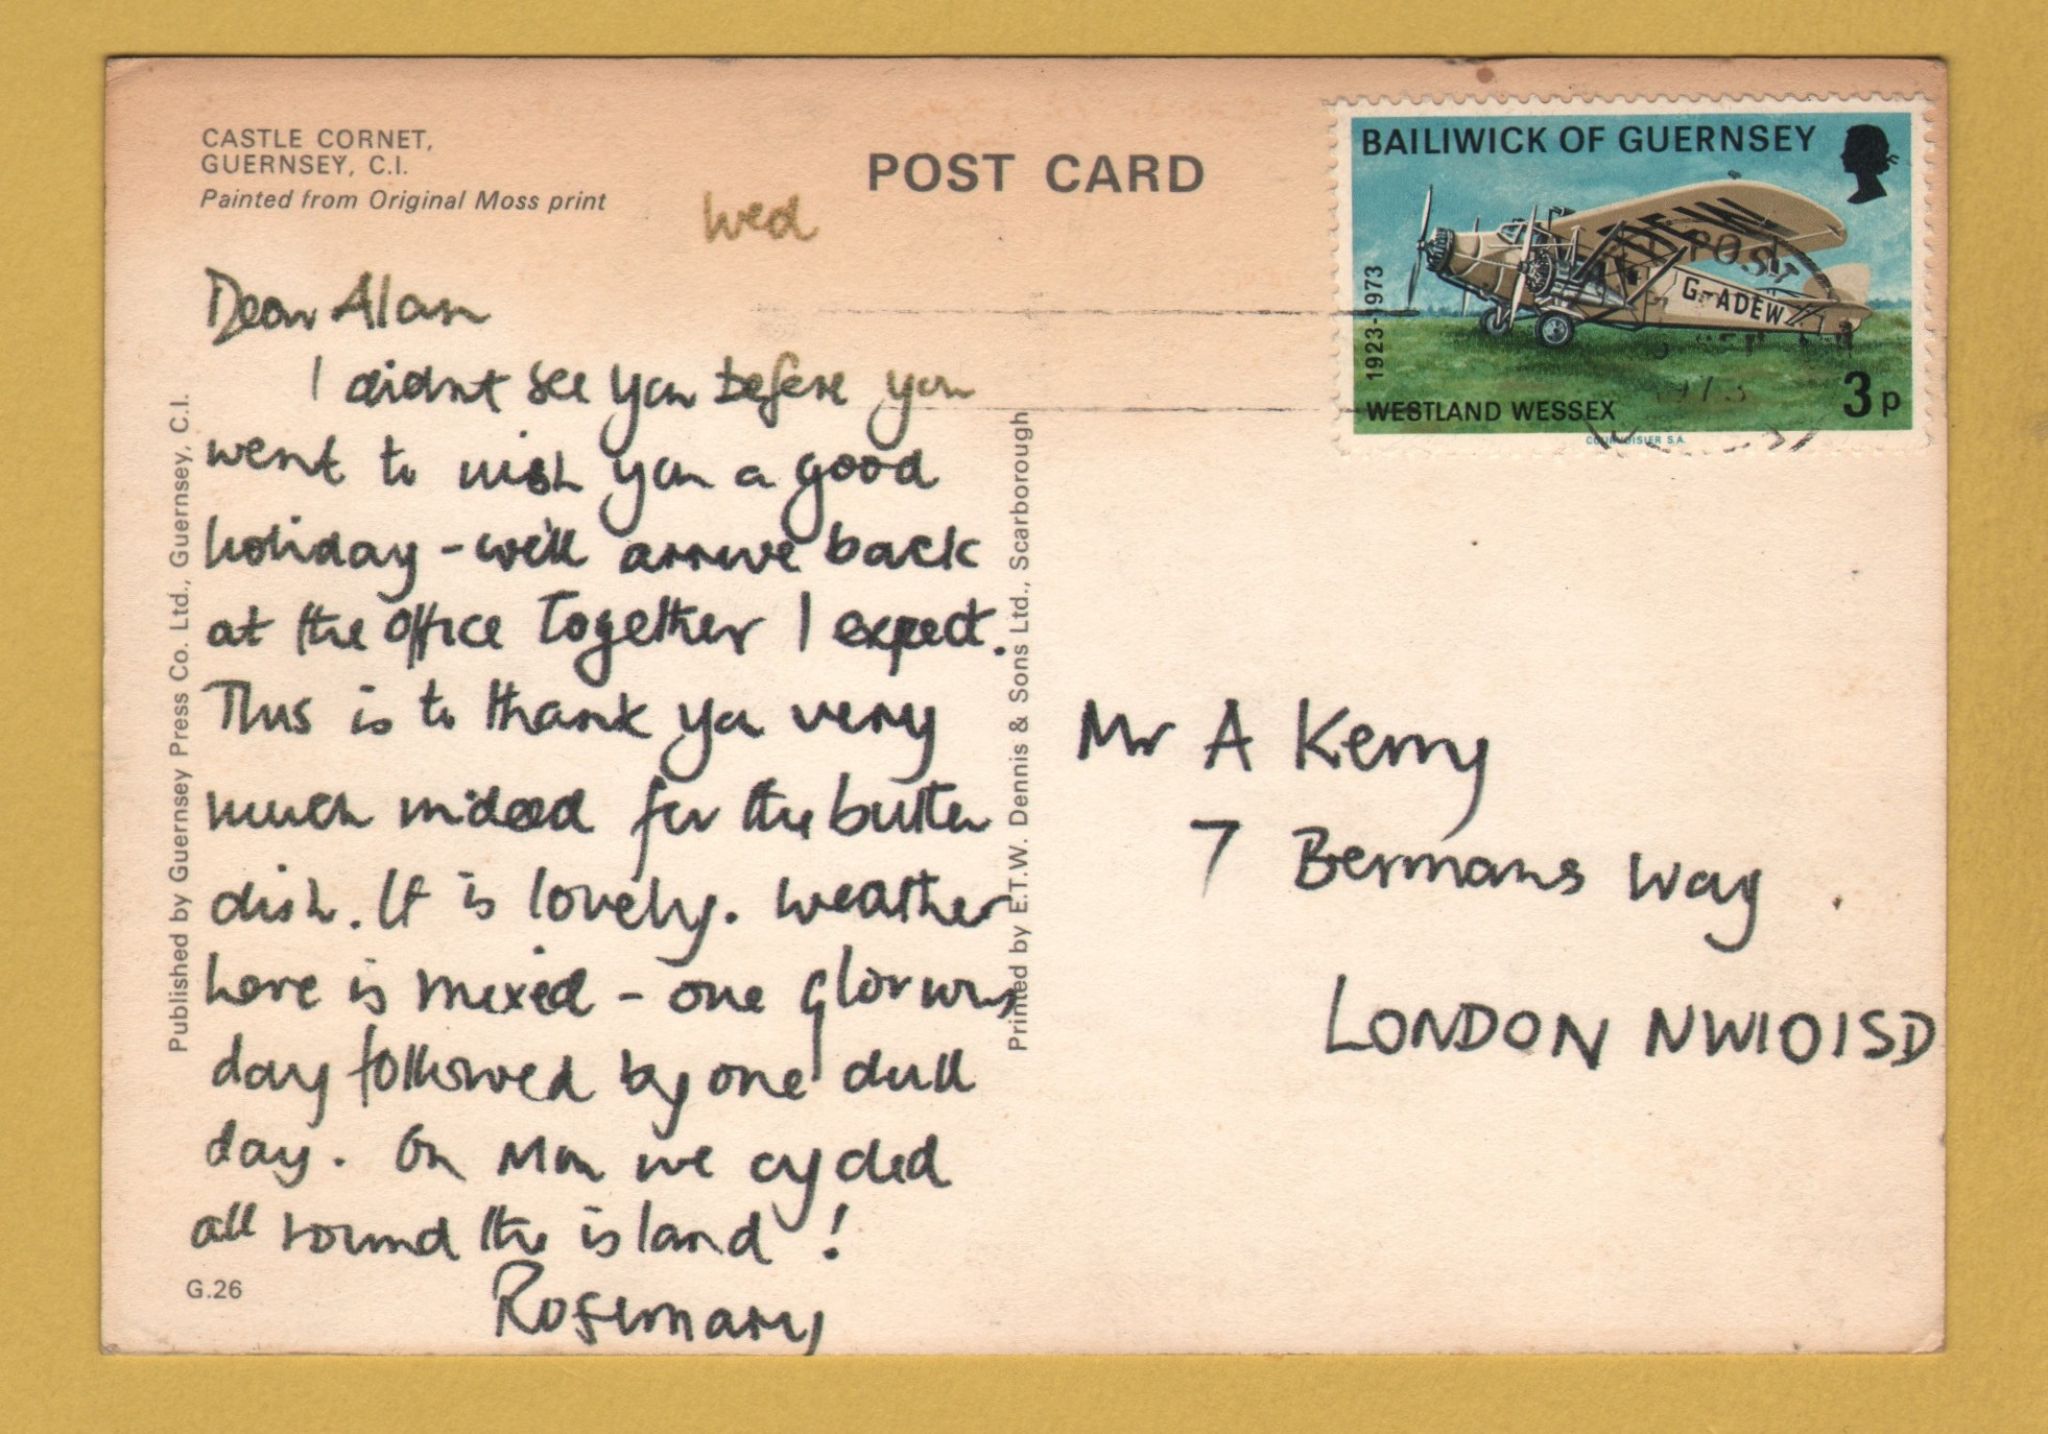 CASTLE CORNET,
GUERNSEY, C.I.
Painted from Original Moss print
POST CARD
Wed
Dear Alan
I didnt see you before you
went to wish you a good
holiday - we'll arrive back
at the office together I expect.
This is to thank you very
much indeed for the butter
dish. It is lovely. Weather
here is mixed - one glorious
day followed by one dull
day. On Mon we cycled
all round the island !
Rosemary
G.26
Published by Guernsey Press Co. Ltd., Guernsey, C.I.
Printed by E.T.W. Dennis & Sons Ltd., Scarborough
BAILIWICK OF GUERNSEY
1923-1973
G-ADEW
WESTLAND WESSEX
3p
COURVOISIER S.A.
POST
Mr A Kerry
7 Bermans Way
LONDON NW10 1SD